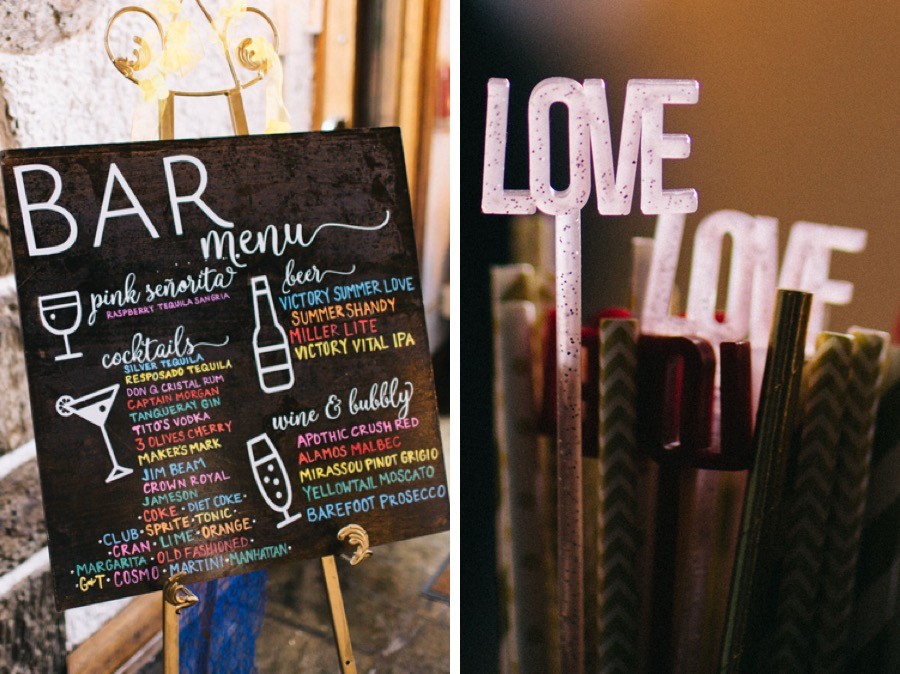 BAR
menu
pink señorita
RASPBERRY TEQUILA SANGRIA
cocktails
SILVER TEQUILA
RESPOSADO TEQUILA
DON Q CRISTAL RUM
CAPTAIN MORGAN
TANQUERAY GIN
TITO'S VODKA
3 OLIVES CHERRY
MAKER'S MARK
JIM BEAM
CROWN ROYAL
JAMESON
COKE · DIET COKE ·
· CLUB · SPRITE · TONIC ·
· CRAN · LIME · ORANGE ·
· MARGARITA · OLD FASHIONED ·
· G&T · COSMO · MARTINI · MANHATTAN ·
beer
VICTORY SUMMER LOVE
SUMMER SHANDY
MILLER LITE
VICTORY VITAL IPA
wine & bubbly
APOTHIC CRUSH RED
ALAMOS MALBEC
MIRASSOU PINOT GRIGIO
YELLOWTAIL MOSCATO
BAREFOOT PROSECCO
LOVE
LOVE